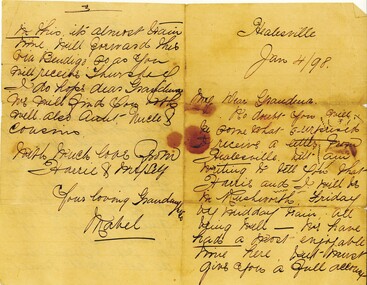 Healesville
Jan 4/98.
My Dear Grandma
No doubt you will
be somewhat surprised
to receive a letter from
Healesville, but am
writing to tell you that
Harrie and I will be
in Rushworth Friday
by midday train all
being well — We have
had a most enjoyable
time here but must
give you a full account
this, it's almost train
time, will forward this
via Bendigo so as you
will receive Thursday
I do hope dear Grandma
we will find you
well also Aunt Uncle &
Cousins
With much love from
Harrie & myself
Your loving
Mabel